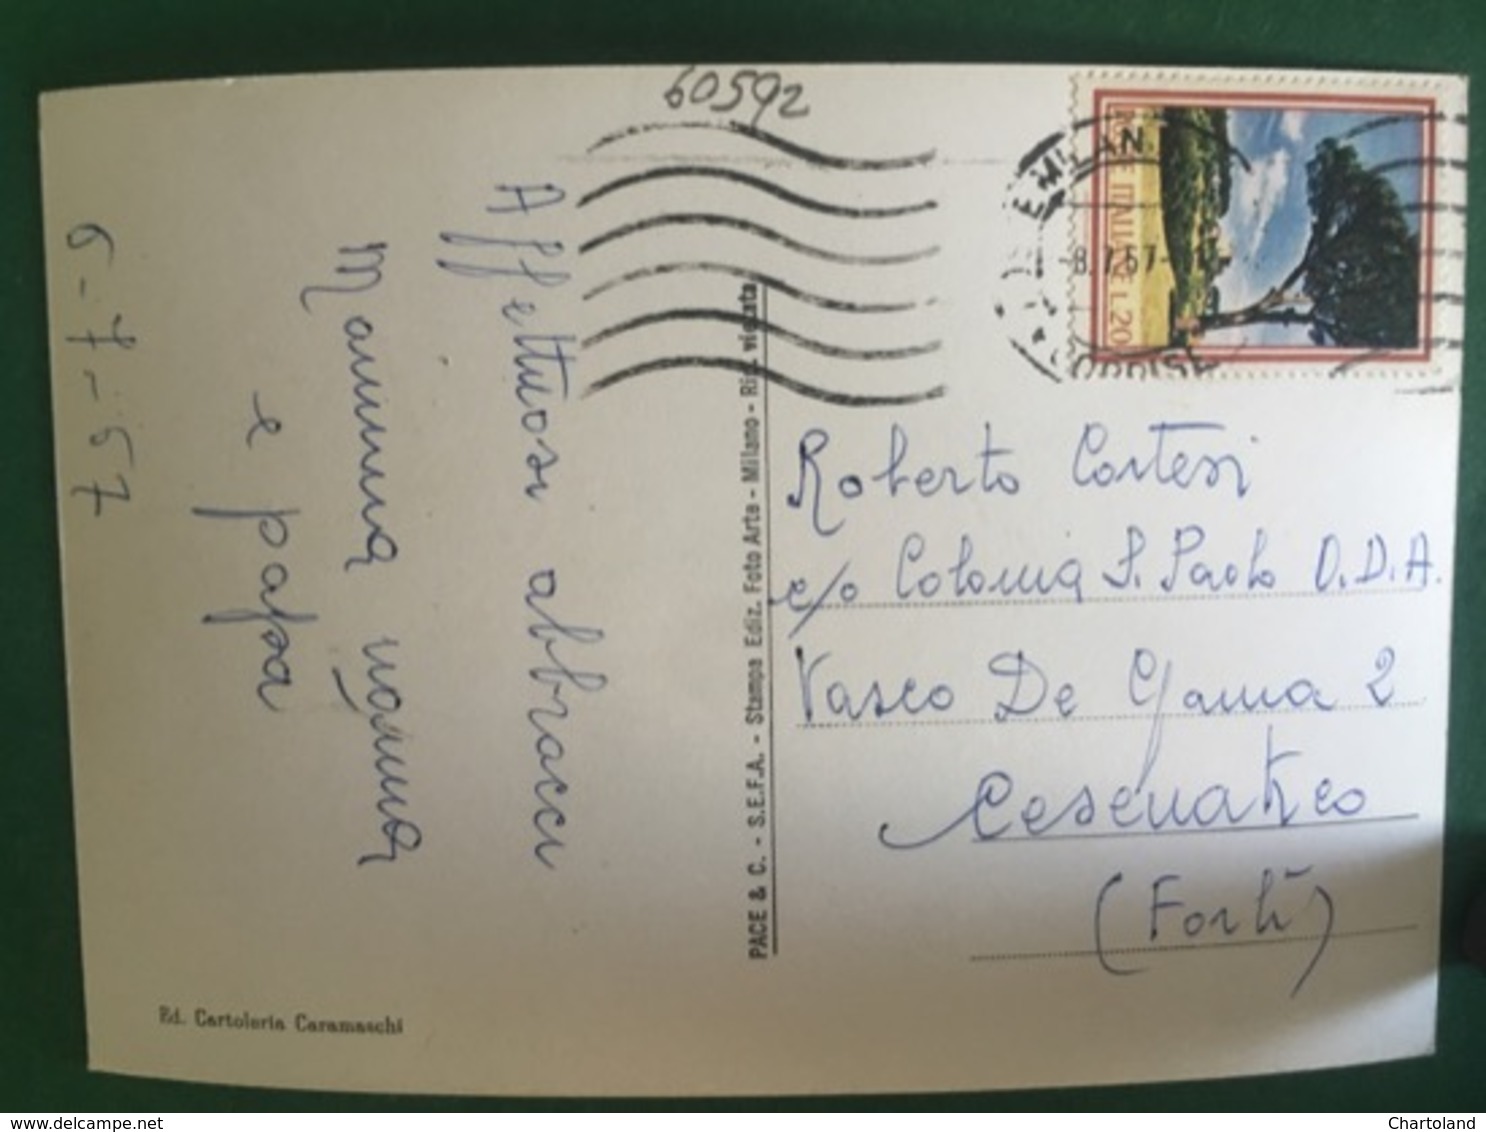 60592
POSTE ITALIANE L. 20
MILAN
8.7.67
Affettuosi abbracci
Mamma nonna
e papa
6-7-67
Roberto Cortesi
c/o Colonia S. Paolo O.D.A.
Vasco De Gama 2
Cesenatico
(Forlì)
PACE & C. - S.E.F.A. - Stampa Ediz. Foto Arte - Milano - Rip. vietata
Ed. Cartoleria Caramaschi
www.delcampe.net
Chartoland